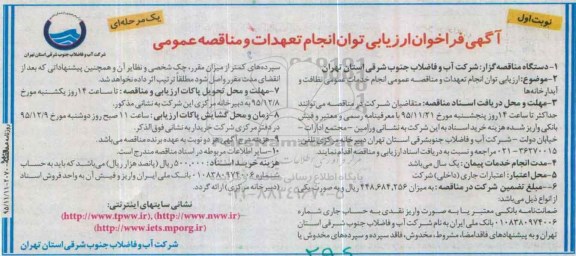 نوبت اول
یک مرحله‌ای
آگهی فراخوان ارزیابی توان انجام تعهدات و مناقصه عمومی
شرکت آب و فاضلاب جنوب شرقی استان تهران
۱- دستگاه مناقصه گزار: شرکت آب و فاضلاب جنوب شرقی استان تهران
۲- موضوع: ارزیابی توان انجام تعهدات و مناقصه عمومی انجام خدمات عمومی نظافت و
آبدارخانه‌ها
۳- مهلت و محل دریافت اسناد مناقصه: متقاضیان شرکت در مناقصه می‌توانند
حداکثر تا ساعت ۱۴ روز پنجشنبه مورخ ۹۵/۱۱/۲۱ با معرفینامه رسمی و معتبر و فیش
بانکی واریز شده هزینه خرید اسناد به این شرکت به نشانی ورامین - مجتمع ادارات -
خیابان دولت - شرکت آب و فاضلاب جنوب شرقی استان تهران ضمن تماس با تلفن
۳۶۲۷۰۰۱۵-۰۲۱ مراجعه و نسبت به دریافت اسناد ارزیابی و مناقصه اقدام نمایند.
۴- مدت انجام خدمات پیمان: یک سال می‌باشد
۵- محل اعتبار: اعتبارات جاری (داخلی) شرکت
۶- مبلغ تضمین شرکت در مناقصه: به میزان ۴۴۸,۶۸۴,۲۵۶ ریال و به صورت یکی
از انواع ذیل می‌باشد:
ضمانت‌نامه بانکی معتبر یا به صورت واریز نقدی به حساب جاری شماره
۰۱۰۸۳۸۰۹۷۴۰۰۶ بانک ملی ایران به نام شرکت آب و فاضلاب جنوب شرقی استان
تهران و به پیشنهادهای فاقد امضا، مشروط، مخدوش، فاقد سپرده و سپرده‌های مخدوش یا
سپرده‌های کمتر از میزان مقرر، چک شخصی و نظایر آن و همچنین پیشنهاداتی که بعد از
انقضای مدت مقرر واصل شود مطلقاً ترتیب اثر داده نخواهد شد.
۷- مهلت و محل تحویل پاکات ارزیابی و مناقصه: تا ساعت ۱۴ روز یکشنبه مورخ
۹۵/۱۲/۸ به دبیرخانه مرکزی این شرکت به نشانی مذکور.
۸- زمان و محل گشایش پاکات ارزیابی: ساعت ۱۱ صبح روز دوشنبه مورخ ۹۵/۱۲/۹
در دفتر مرکزی شرکت خریدار به نشانی فوق الذکر.
هزینه درج آگهی در دو نوبت به عهده برنده مناقصه می‌باشد
سایر اطلاعات مربوطه در اسناد مناقصه مندرج است.
هزینه خرید اسناد: ۵۰۰,۰۰۰ ریال (پانصد هزار ریال) می‌باشد که باید به حساب
شماره ۰۱۰۸۳۸۰۹۷۴۰۰۸ بانک ملی ایران واریز و فیش آن به واحد فروش اسناد
(دبیرخانه مرکزی) ارائه گردد.
نشانی سایتهای اینترنتی:
(http://www.tpww.ir), (http://www.nww.ir)-
(http://www.iets.mporg.ir)
شرکت آب و فاضلاب جنوب شرقی استان تهران